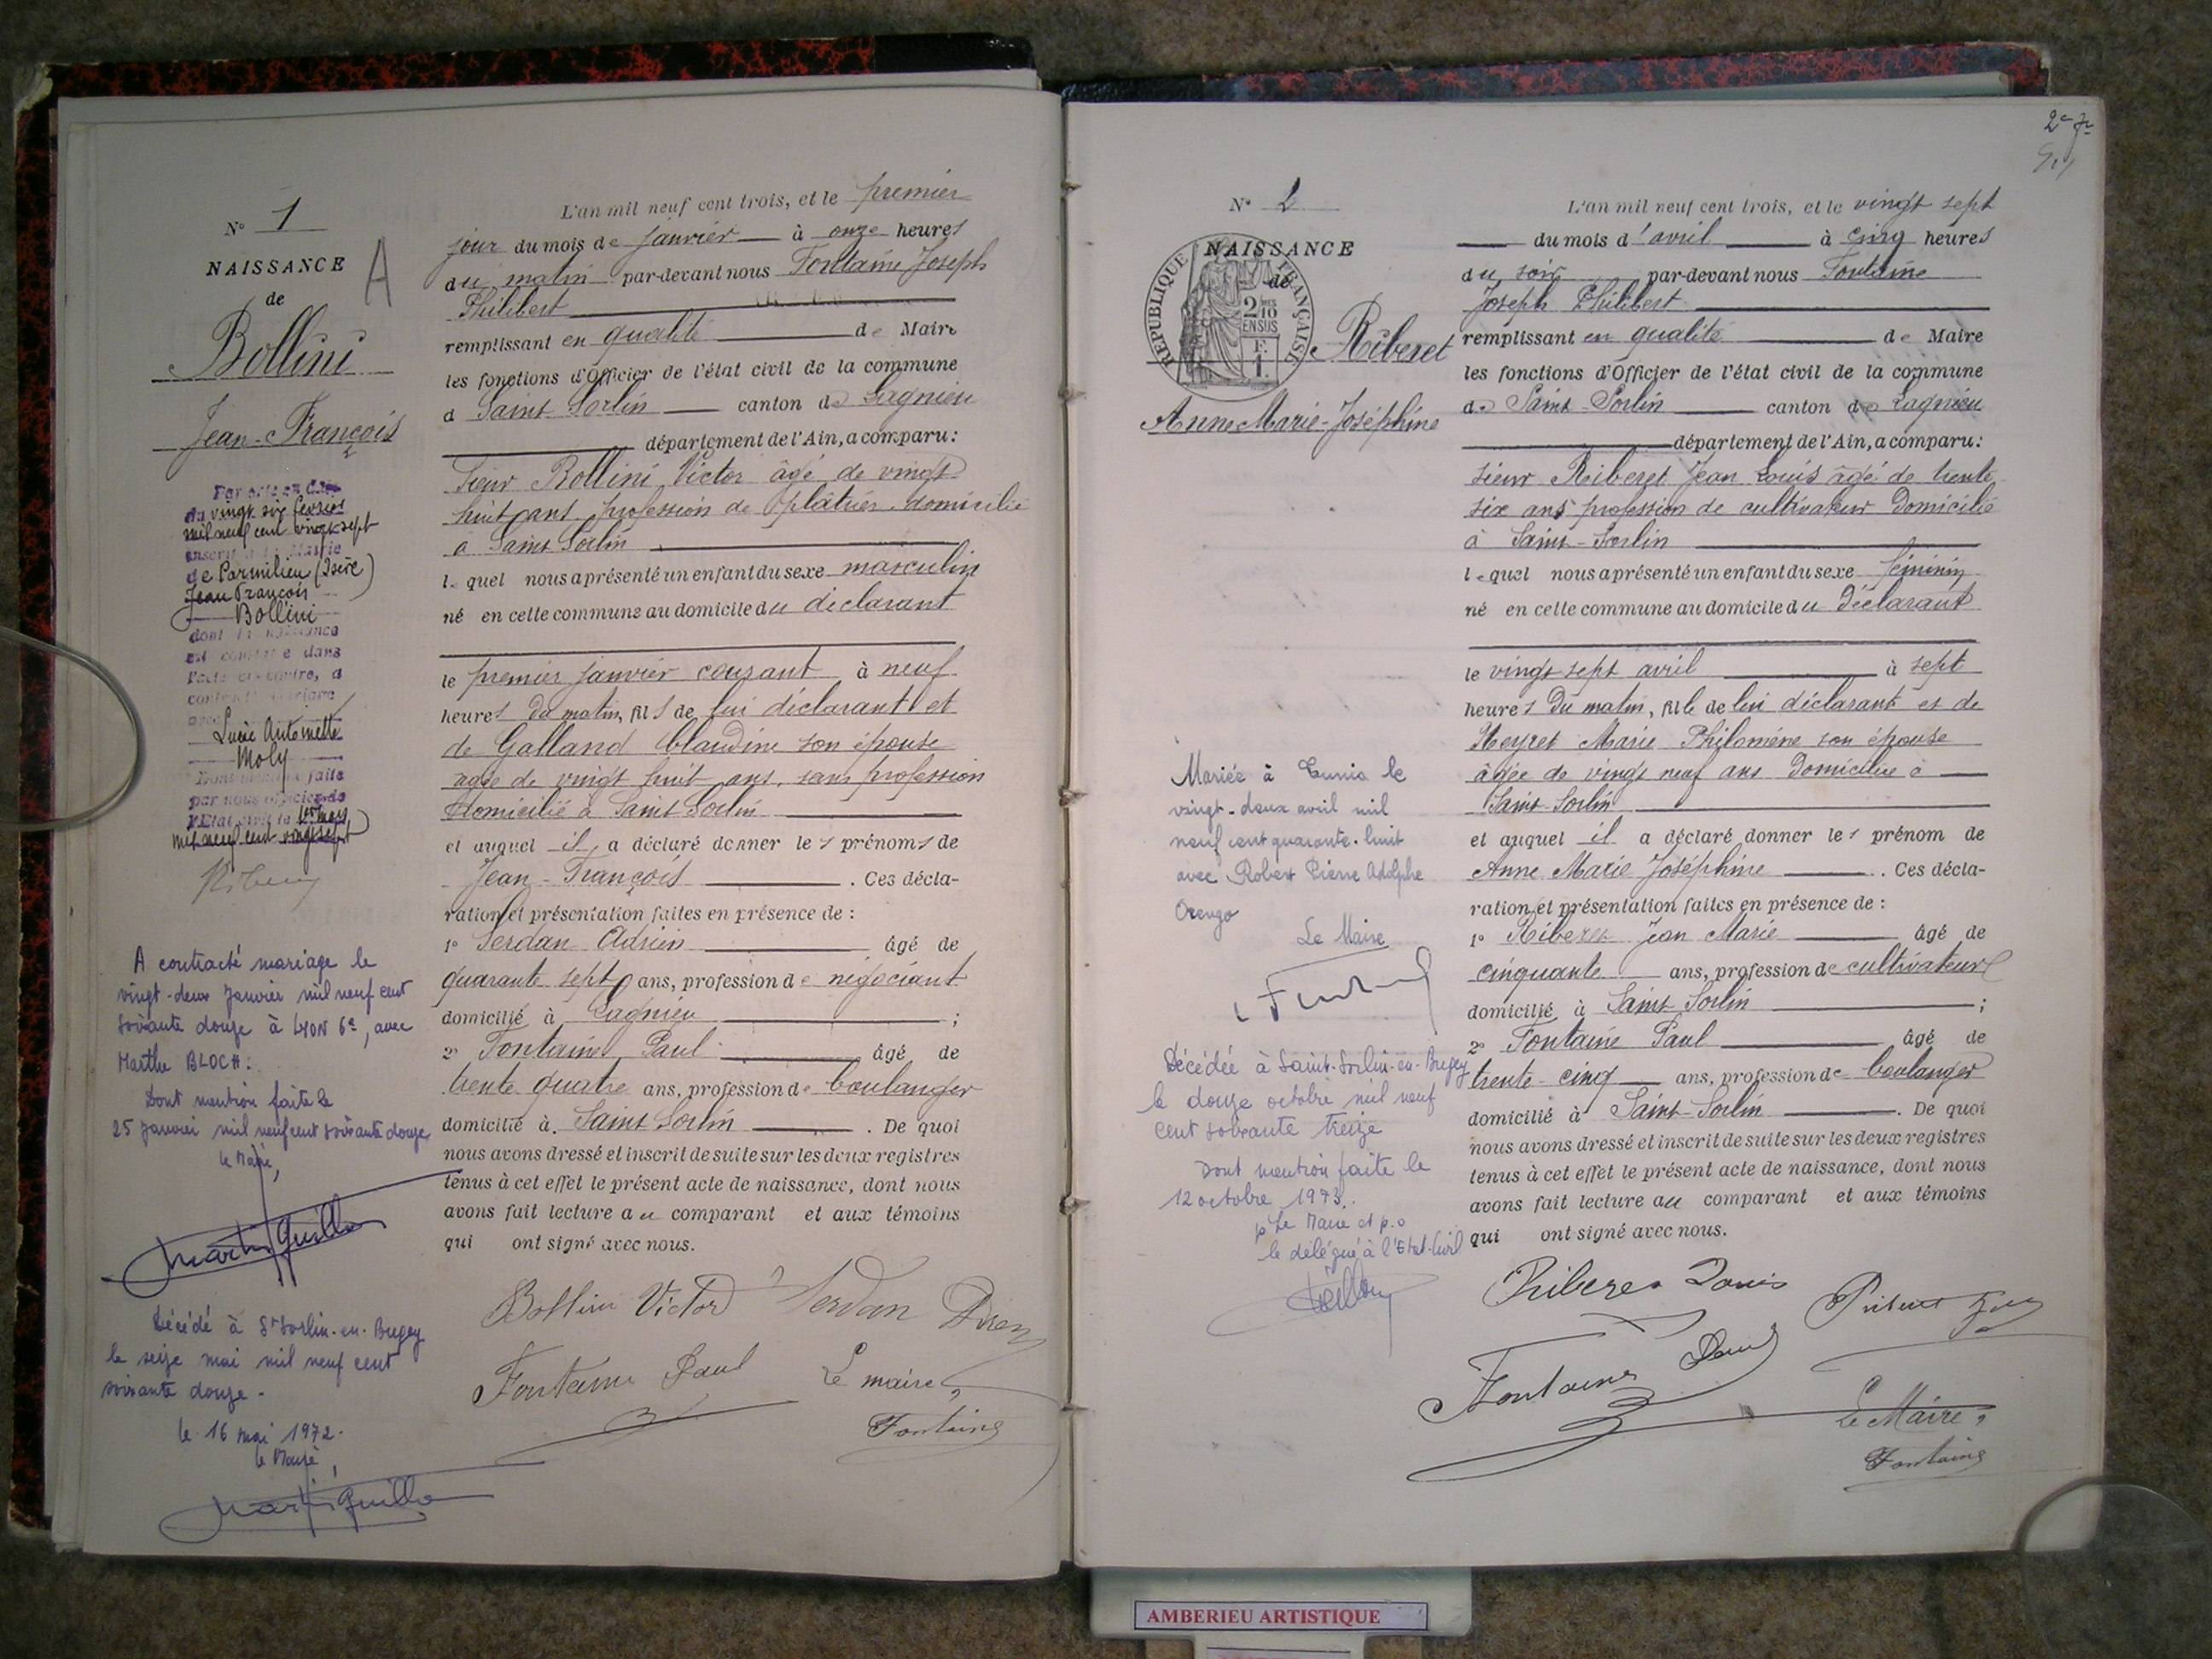 N° 1
NAISSANCE
de
Bollini
Jean-François
A
Par acte en date
du vingt six février
mil neuf cent vingt sept
inscrit à la Mairie
de Parmilieu (Isère)
Jean François
Bollini
dont la naissance
est constatée dans
l'acte ci-contre, a
contracté mariage
avec
Lucie Antoinette
Moly
Dont mention faite
par nous officier de
l'Etat civil le 1er mars
mil neuf cent vingt sept
A contracté mariage le
vingt-deux Janvier mil neuf cent
soixante douze à LYON 6e, avec
Marthe BLOCH.
Dont mention faite le
25 Janvier mil neuf cent soixante douze,
le Maire,
Décédé à St Sorlin-en-Bugey
le seize mai mil neuf cent
soixante douze.
le 16 mai 1972.
le Maire,
L'an mil neuf cent trois, et le premier
jour du mois de janvier à onze heures
du matin par-devant nous Fontaine Joseph
Philibert
remplissant en qualité de Maire
les fonctions d'Officier de l'état civil de la commune
d Saint Sorlin canton de Lagnieu
département de l'Ain, a comparu:
Sieur Bollini Victor âgé de vingt
huit ans profession de plâtrier domicilié
à Saint Sorlin
lequel nous a présenté un enfant du sexe masculin
né en cette commune au domicile du déclarant
le premier janvier courant à neuf
heures du matin, fils de lui déclarant et
de Galland Claudine son épouse
agée de vingt huit ans, sans profession
domicilié à Saint Sorlin
et auquel il a déclaré donner les prénoms de
Jean-François . Ces décla-
ration et présentation faites en présence de :
1° Serdan Adrien âgé de
quarante sept ans, profession de négociant
domicilié à Lagnieu ;
2° Fontaine Paul âgé de
trente quatre ans, profession de boulanger
domicilié à Saint Sorlin . De quoi
nous avons dressé et inscrit de suite sur les deux registres
tenus à cet effet le présent acte de naissance, dont nous
avons fait lecture au comparant et aux témoins
qui ont signé avec nous.
Bollini Victor Serdan
Fontaine Paul Le maire,
Fontaine
N° 2
NAISSANCE
de
REPUBLIQUE FRANÇAISE
2/10
EN SUS
Riberet
Anne Marie-Joséphine
Mariée à Tunis le
vingt-deux avril mil
neuf cent quarante-huit
avec Robert Pierre Adolphe
Orengo
Le Maire
Décédée à Saint-Sorlin-en-Bugey
le douze octobre mil neuf
cent soixante treize
Dont mention faite le
12 octobre 1973.
p Le Maire et p.o
le délégué à l'Etat-Civil
L'an mil neuf cent trois, et le vingt sept
du mois d'avril à cinq heures
du soir par-devant nous Fontaine
Joseph Philibert
remplissant en qualité de Maire
les fonctions d'Officier de l'état civil de la commune
de Saint-Sorlin canton de Lagnieu
département de l'Ain, a comparu:
sieur Riberet Jean Louis âgé de trente
six ans profession de cultivateur domicilié
à Saint-Sorlin
lequel nous a présenté un enfant du sexe féminin
né en cette commune au domicile du déclarant
le vingt sept avril à sept
heures du matin, fille de lui déclarant et de
Peyret Marie Philomène son épouse
âgée de vingt neuf ans domiciliée à
Saint-Sorlin
et auquel il a déclaré donner les prénom de
Anne Marie Joséphine . Ces décla-
ration et présentation faites en présence de :
1° Riberet Jean Marie âgé de
cinquante ans, profession de cultivateur
domicilié à Saint Sorlin ;
2° Fontaine Paul âgé de
trente-cinq ans, profession de boulanger
domicilié à Saint-Sorlin . De quoi
nous avons dressé et inscrit de suite sur les deux registres
tenus à cet effet le présent acte de naissance, dont nous
avons fait lecture au comparant et aux témoins
qui ont signé avec nous.
Riberet Louis
Fontaine Paul
Le Maire,
Fontaine
AMBERIEU ARTISTIQUE